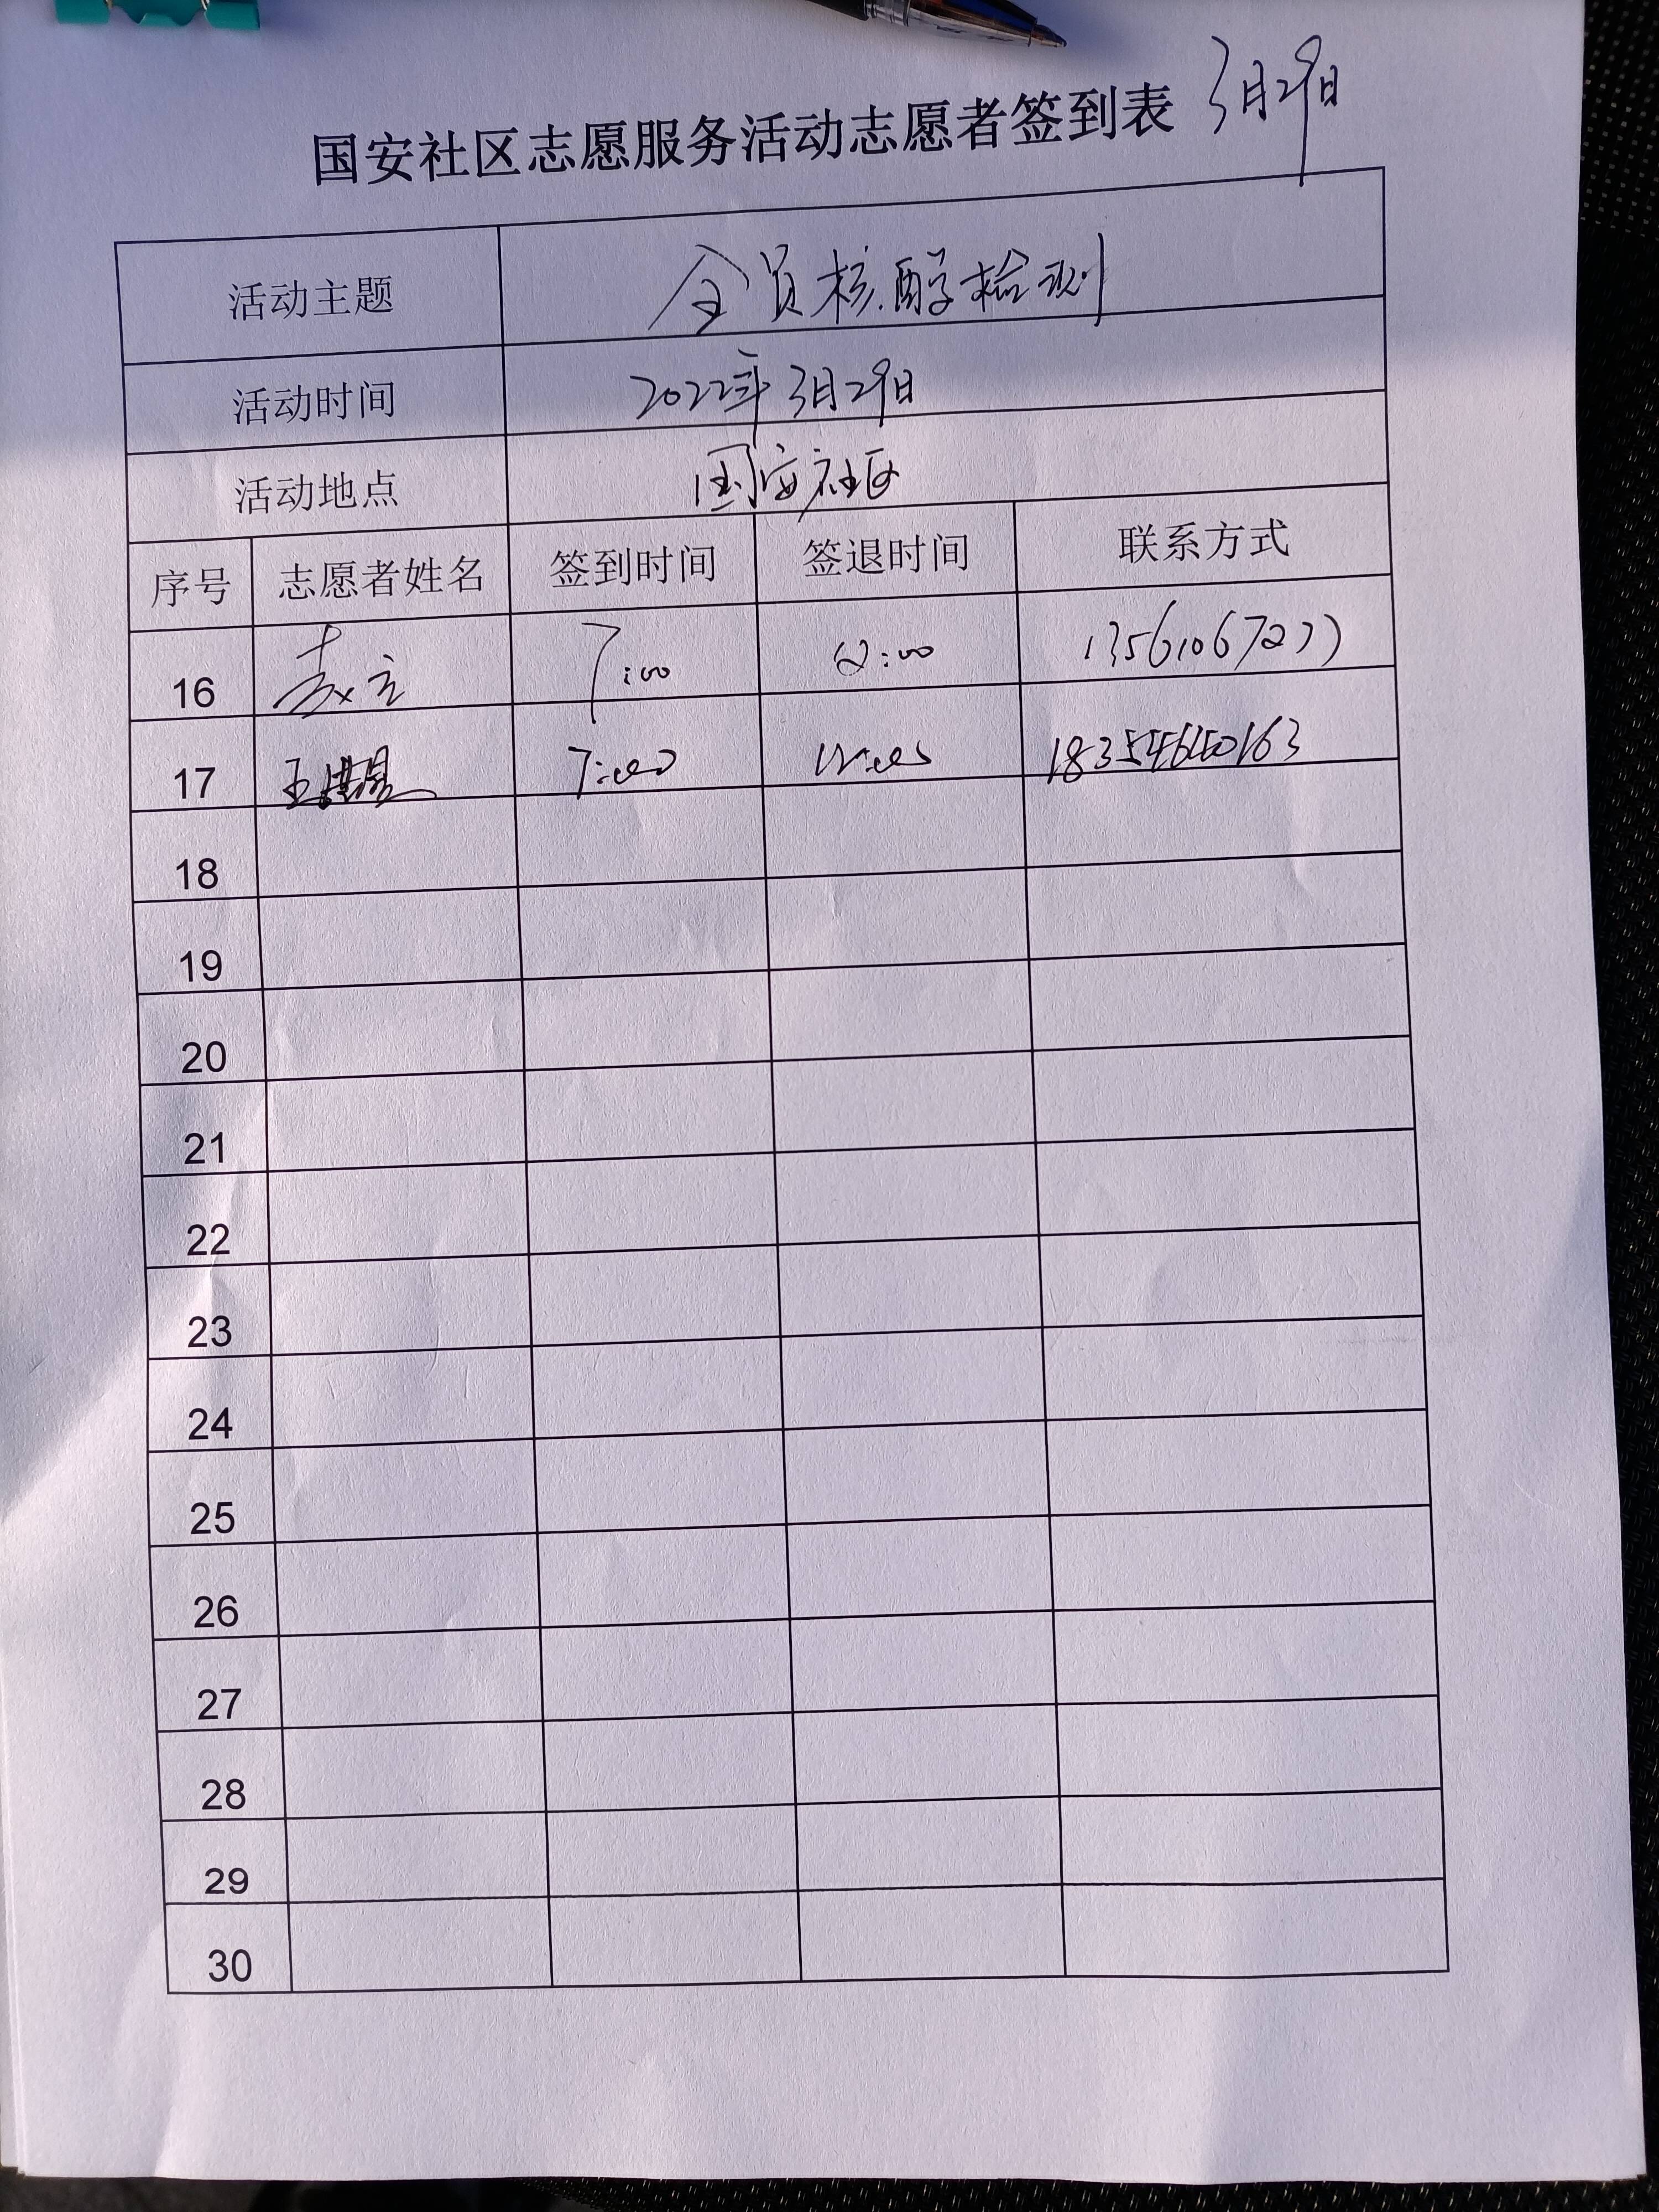 国安社区志愿服务活动志愿者签到表 3月29日
活动主题 全员核酸检测
活动时间 2022年3月29日
活动地点 国安社区
序号 志愿者姓名 签到时间 签退时间 联系方式
16 7:00 12:00
17 王 7:00 12:00 18354640163
18
19
20
21
22
23
24
25
26
27
28
29
30